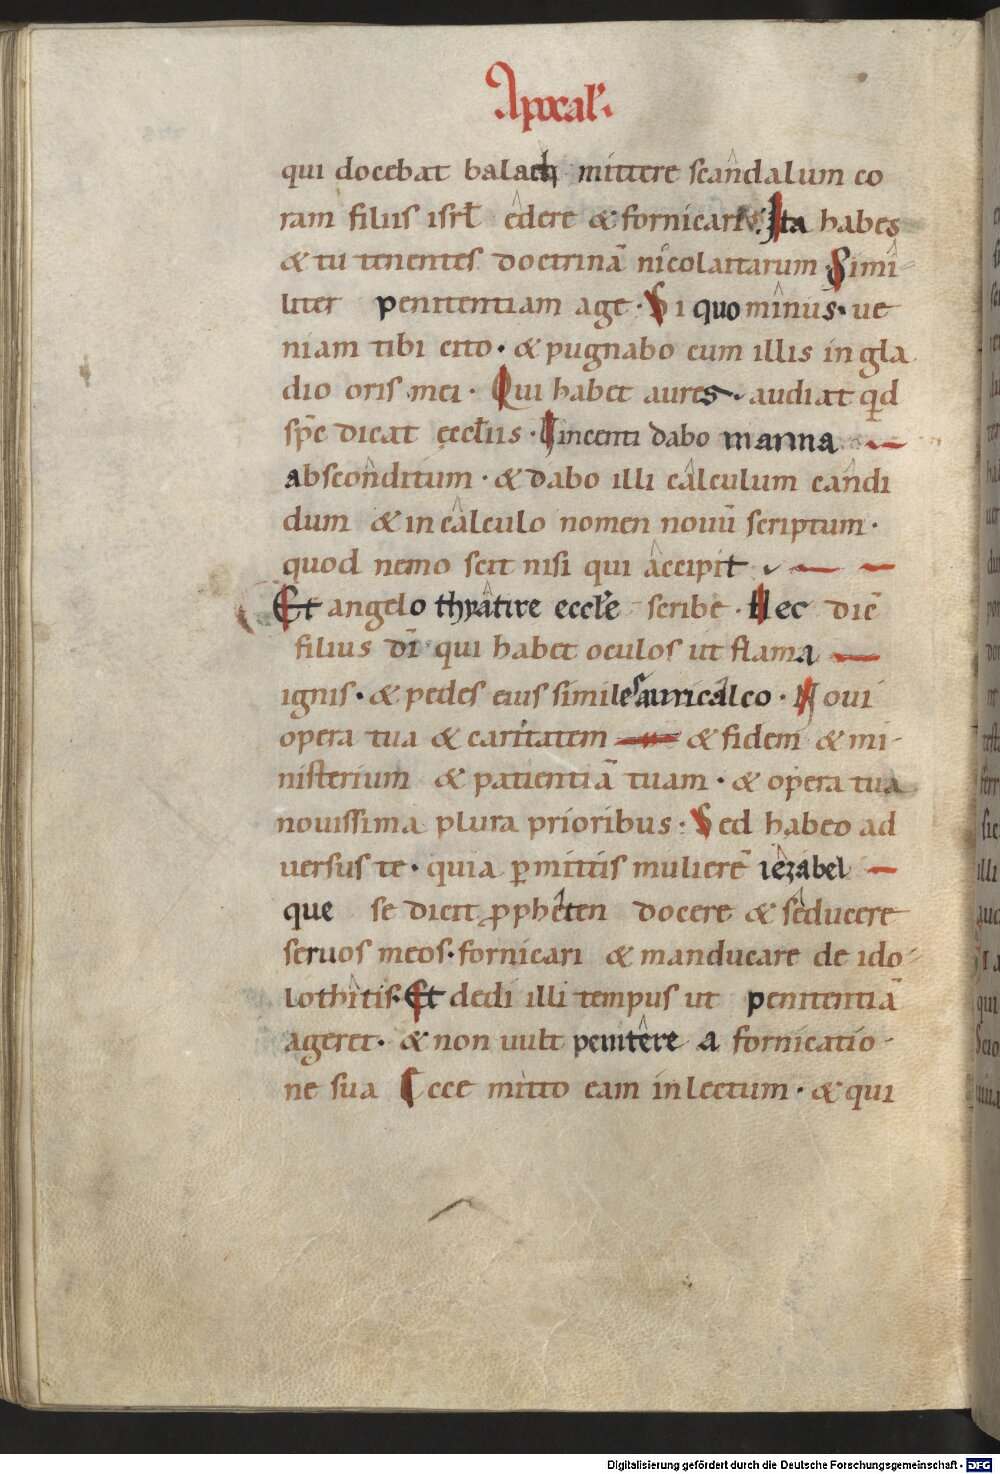 Apocał.
qui docebat balach mittere scandalum co
ram filiis isrł edere & fornicari. Ita habes
& tu tenentes doctrinā nicolaitarum. Simi-
liter penitentiam age. Si quo minus. ue
niam tibi cito. & pugnabo cum illis in gla
dio oris mei. Qui habet aures audiat qd
sp̄c dicat ęccłiis. Uincenti dabo manna
absconditum. & dabo illi calculum candi
dum & in calculo nomen nouū scriptum.
quod nemo scit nisi qui accipit
Et angelo thyatire eccłe scribe. Hec dič
filius dī qui habet oculos ut flamā
ignis. & pedes eius similes auricalco. Noui
opera tua & caritatem & fidem & mi-
nisterium & patientiā tuam. & opera tua
nouissima plura prioribus. Sed habeo ad
uersus te. quia ꝑmittis mulierē iezabel
que se dicit ꝓpheten docere & seducere
seruos meos. fornicari & manducare de ido-
lothitis. Et dedi illi tempus ut penitentiā
ageret. & non uult penitere a fornicatio-
ne sua Ecce mitto eam in lectum. & qui
Digitalisierung gefördert durch die Deutsche Forschungsgemeinschaft - DFG